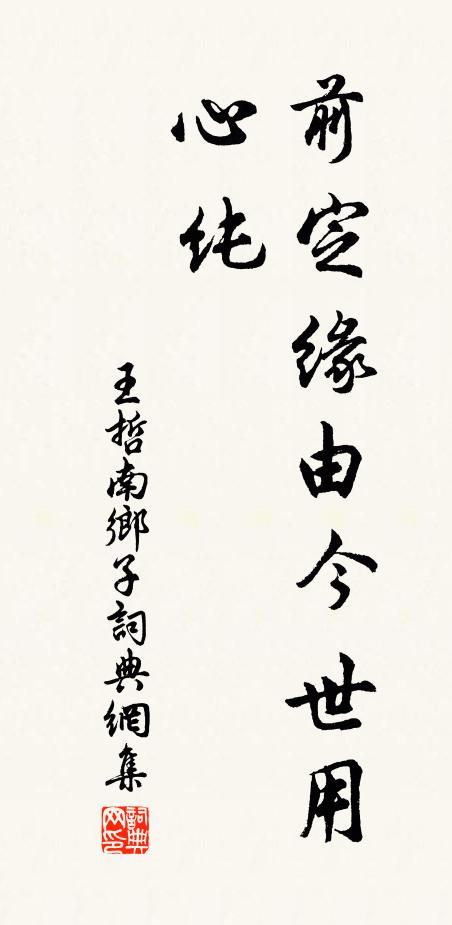 前定缘由今世用
心纯
王哲南鄉子詞典網集
詞典
网印